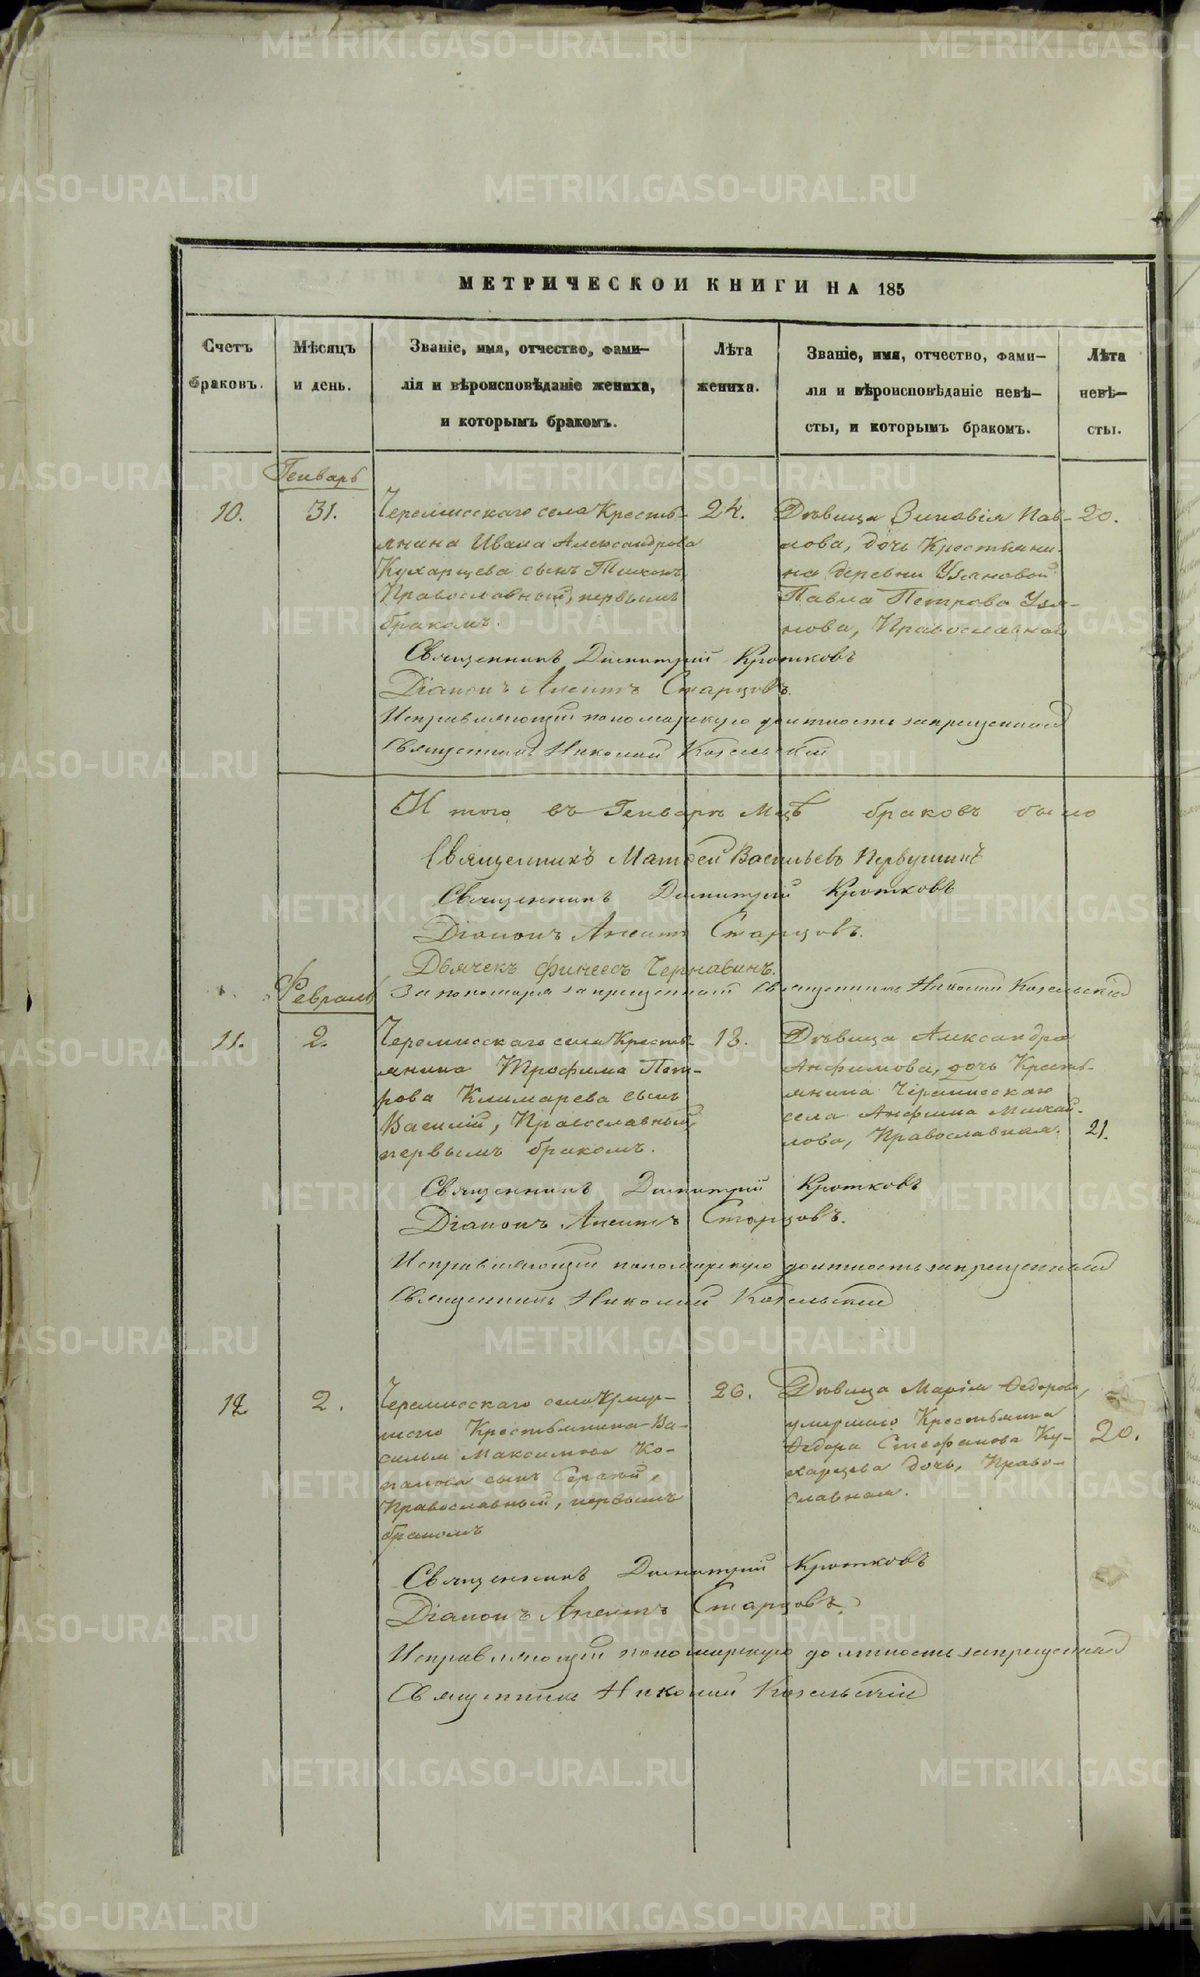 МЕТРИЧЕСКОЙ КНИГИ НА 185
Счетъ браковъ.
Мѣсяцъ и день.
Званіе, имя, отчество, фами-
лія и вѣроисповѣданіе жениха,
и которымъ бракомъ.
Лѣта жениха.
Званіе, имя, отчество, фами-
лія и вѣроисповѣданіе невѣ-
сты, и которымъ бракомъ.
Лѣта невѣ-
сты.
Генварь
10.
31.
Черемисскаго села Кресть-
янина Ивана Александрова
Кухарцева сынъ Тихонъ,
Православный, первымъ
бракомъ.
24.
Дѣвица Зиновія Пав-
лова, дочь Крестьяни-
на деревни Узяновой
Павла Петрова Узя-
нова, Православная
20.
Священникъ Димитрій Кротковъ
Діаконъ Старцовъ.
Исправляющій пономарскую должность запрещенный
Священникъ Николай Козельскій
Итого въ Генварѣ Мцѣ браковъ было
Священникъ Матѳей Васильевъ Первушинъ
Священникъ Димитрій Кротковъ
Діаконъ Старцовъ.
Дьячекъ Финеесъ Чернавинъ.
Февраль
За пономаря запрещенный Священникъ Николай Козельскій
11.
2.
Черемисскаго села Кресть-
янина Трофима Пет-
рова Климарева сынъ
Василій, Православный,
первымъ бракомъ.
18.
Дѣвица Александра
Анфимова, дочь Кресть-
янина Черемисскаго
села Анфима Михай-
лова, Православная.
21.
Священникъ Димитрій Кротковъ
Діаконъ Старцовъ.
Исправляющій пономарскую должность запрещенный
Священникъ Николай Козельскій
12.
2.
Черемисскаго села умер-
шаго Крестьянина Ва-
силья Максимова
сынъ Сергѣй,
Православный, первымъ
бракомъ
26.
Дѣвица Марія Ѳедорова,
умершаго Крестьянина
Ѳедора Стефанова Ку-
харцева дочь, Право-
славная.
20.
Священникъ Димитрій Кротковъ
Діаконъ Старцовъ.
Исправляющій пономарскую должность запрещенный
Священникъ Николай Козельскій
METRIKI.GASO-URAL.RU